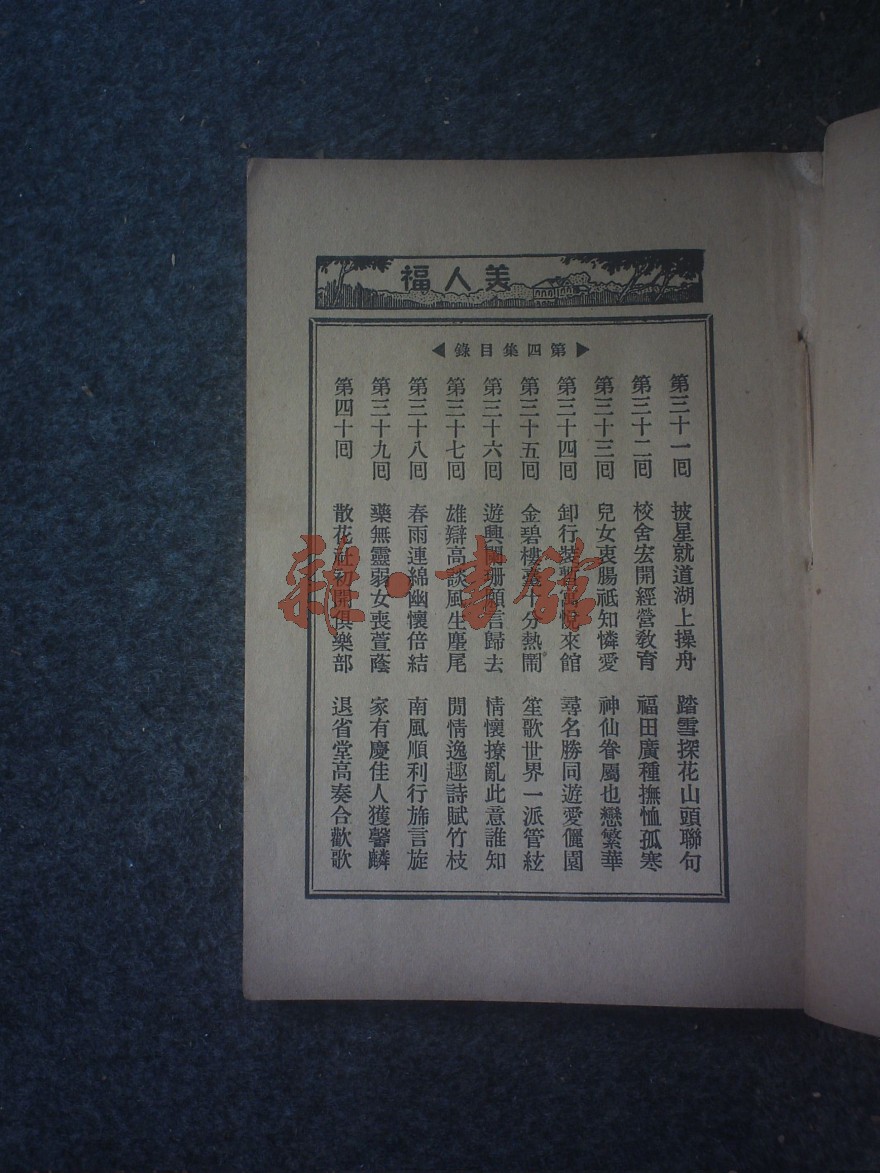 美人福
第四集目錄
第三十一囘 披星就道湖上操舟 踏雪探花山頭聯句
第三十二囘 校舍宏開經營教育 福田廣種撫恤孤寒
第三十三囘 兒女衷腸祗知憐愛 神仙眷屬也戀繁華
第三十四囘 卸行裝暫寓悅來館 尋名勝同遊愛儷園
第三十五囘 金碧樓臺十分熱鬧 笙歌世界一派管絃
第三十六囘 遊興闌珊願言歸去 情懷撩亂此意誰知
第三十七囘 雄辯高談風生麈尾 閒情逸趣詩賦竹枝
第三十八囘 春雨連綿幽懷倍結 南風順利行旆言旋
第三十九囘 藥無靈弱女喪萱蔭 家有慶佳人獲馨麟
第四十囘 散花社初開俱樂部 退省堂高奏合歡歌
雜·書館